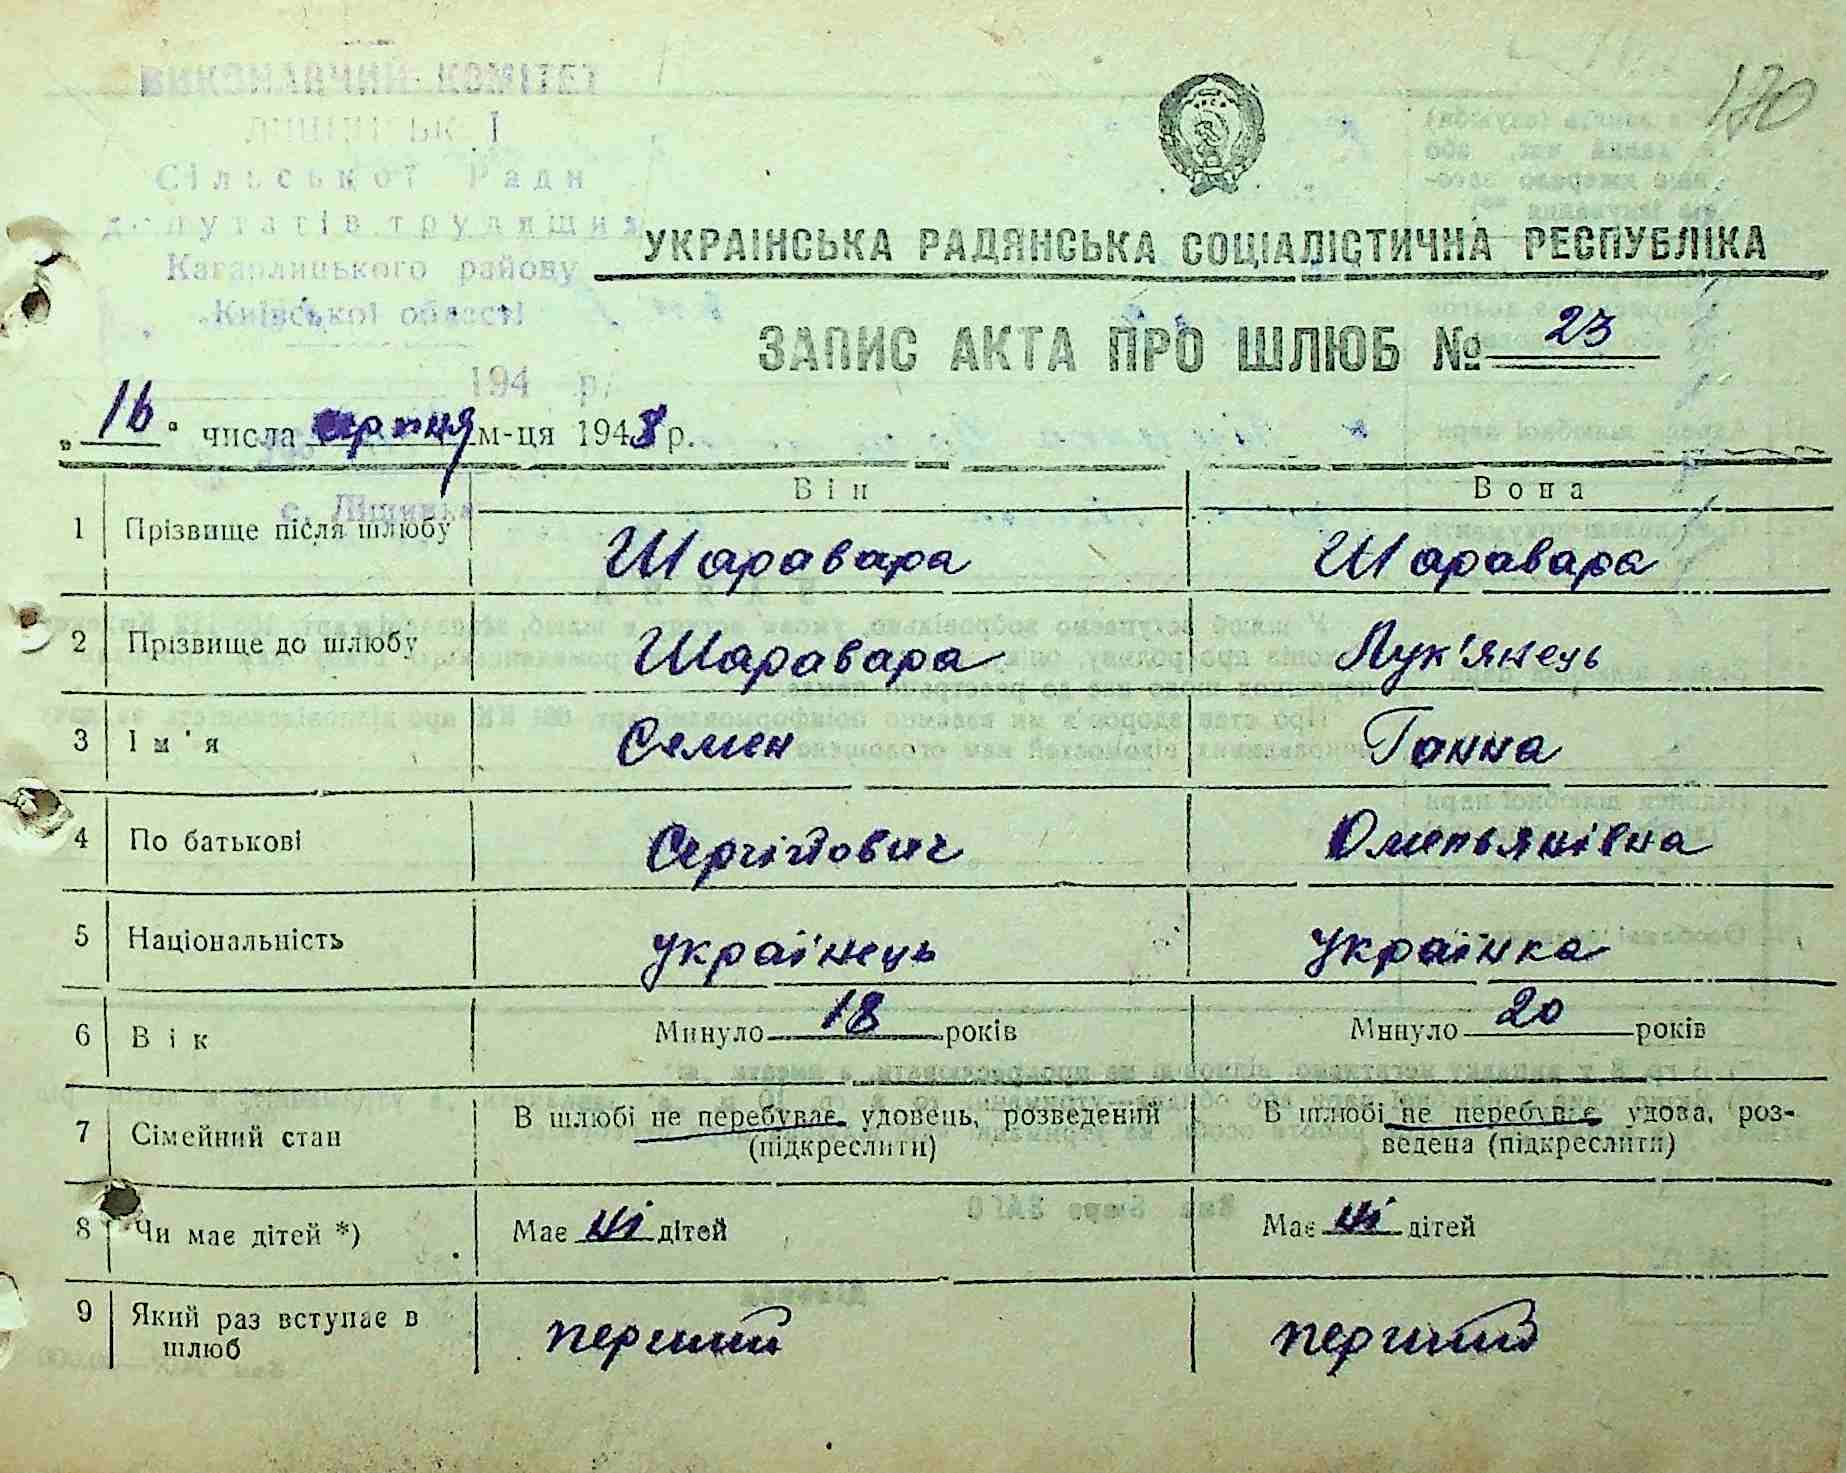 170
ВИКОНАВЧИЙ КОМІТЕТ
Сільської Ради
депутатів трудящих
Кагарлицького району
Київської області
194 р.
с. Ліщинка
УКРАЇНСЬКА РАДЯНСЬКА СОЦІАЛІСТИЧНА РЕСПУБЛІКА
ЗАПИС АКТА ПРО ШЛЮБ № 23
„16“ числа серпня м-ця 1948 р.
Він Вона
1 Прізвище після шлюбу Шаравара Шаравара
2 Прізвище до шлюбу Шаравара Лук'янець
3 Ім'я Семен Ганна
4 По батькові Сергійович Омельянівна
5 Національність українець українка
6 Вік Минуло 18 років Минуло 20 років
7 Сімейний стан В шлюбі не перебуває, удовець, розведений В шлюбі не перебуває, удова, роз-
(підкреслити) ведена (підкреслити)
8 Чи має дітей *) Має ні дітей Має ні дітей
9 Який раз вступає в перший перший
шлюб